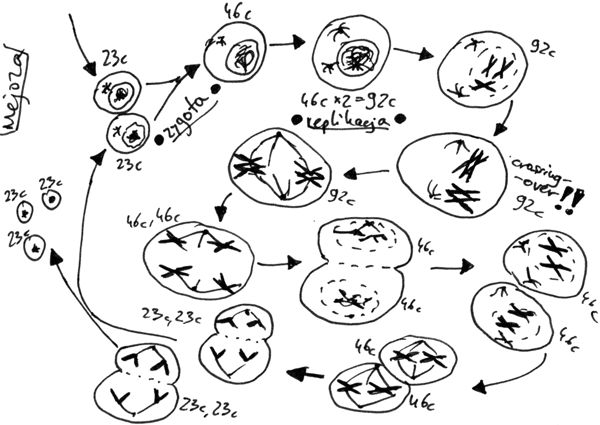 Mejoza
23c
23c
46c
zygota
46c × 2 = 92c
replikacja
92c
crossing-
-over!!
92c
92c
46c, 46c
46c
46c
46c
46c
46c
46c
23c, 23c
23c, 23c
23c
23c
23c